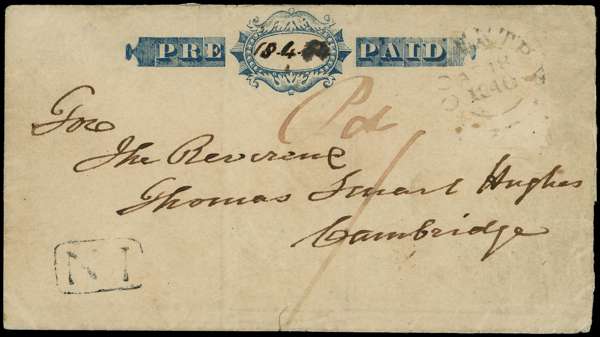 PRE 18.4. PAID
18
1840
Pd
For
The Reverend
Thomas Smart Hughes
Cambridge
1
N 1